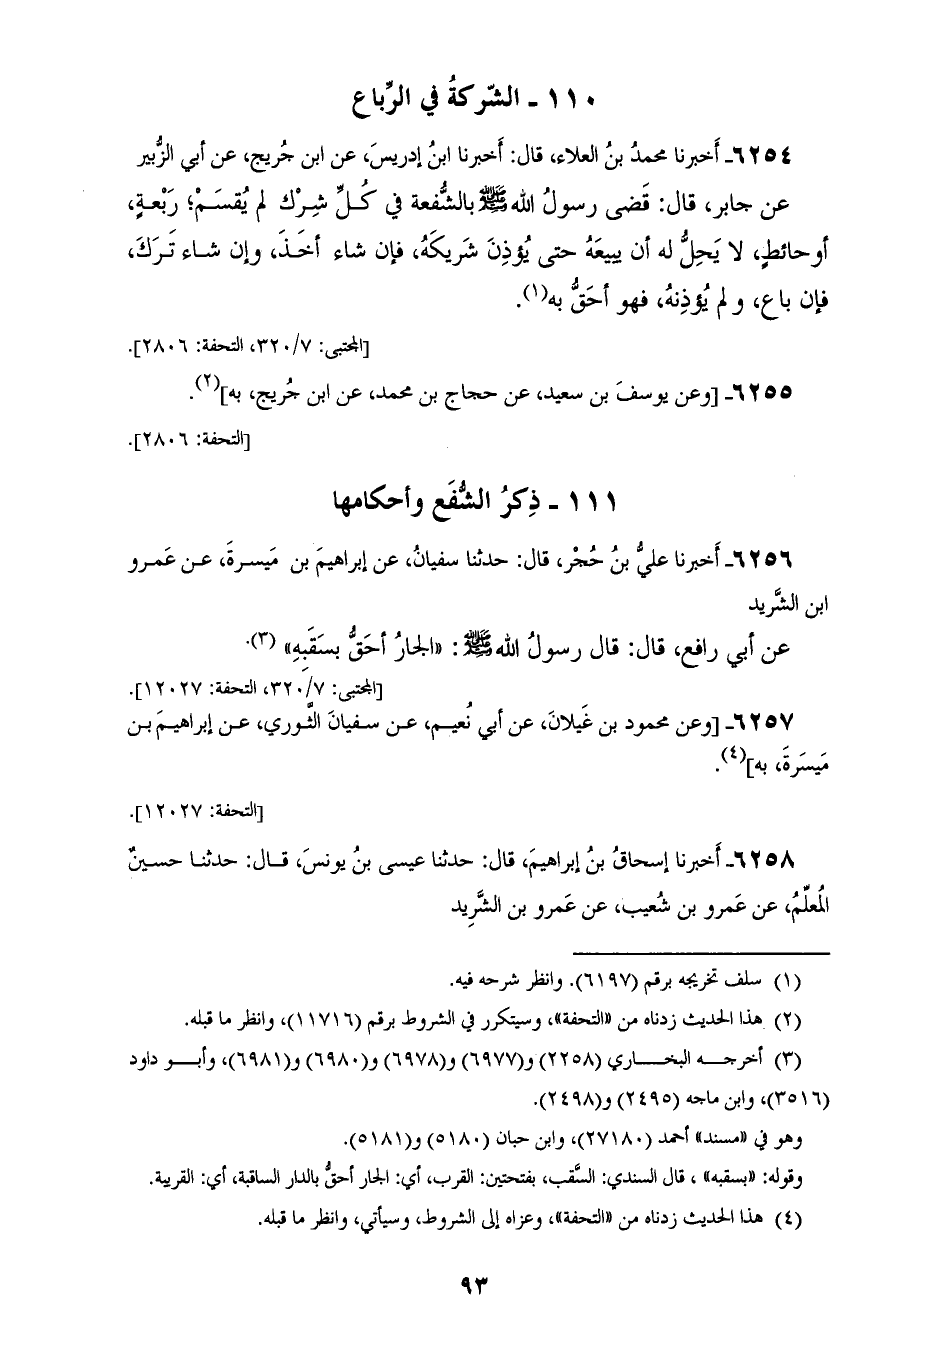 ١١٠ - الشّركةُ في الرِّباع
٦٢٥٤- أَخبرنا محمدُ بنُ العلاء، قال: أَخبرنا ابنُ إدريسَ، عن ابن جُريج، عن أبي الزُّبير
عن جابر، قال: قَضى رسولُ اللهﷺ بالشُّفعة في كُلِّ شِرْك لم يُقسَمْ؛ رَبْعةٍ،
أو حائطٍ، لا يَحِلُّ له أن يبيعَهُ حتى يُؤذِنَ شَريكَهُ، فإن شاء أخَذَ، وإن شاء تَرَكَ،
فإن باع، ولم يُؤذِنهُ، فهو أحَقُّ به(١).
[المجتبى: ٣٢٠/٧، التحفة: ٢٨٠٦].
٦٢٥٥- [وعن يوسفَ بن سعيد، عن حجاج بن محمد، عن ابن جُريج، به](٢).
[التحفة: ٢٨٠٦].
١١١ - ذِكرُ الشُّفَع وأحكامها
٦٢٥٦- أَخبرنا عليُّ بنُ حُجْر، قال: حدثنا سفيانُ، عن إبراهيمَ بن مَيسرةَ، عن عَمرو
ابن الشَّريد
عن أبي رافع، قال: قال رسولُ اللهﷺ: «الجارُ أحَقُّ بسَقَبِهِ» (٣).
[المجتبى: ٣٢٠/٧، التحفة: ١٢٠٢٧].
٦٢٥٧- [وعن محمود بن غَيلانَ، عن أبي نُعيم، عن سفيانَ الثَّوري، عن إبراهيمَ بن
مَيسَرةَ، به](٤).
[التحفة: ١٢٠٢٧].
٦٢٥٨- أَخبرنا إسحاقُ بنُ إبراهيمَ، قال: حدثنا عيسى بنُ يونسَ، قال: حدثنا حسينٌ
المُعلِّمُ، عن عَمرو بن شُعيب، عن عَمرو بن الشَّرِيد
(١) سلف تخريجه برقم (٦١٩٧). وانظر شرحه فيه.
(٢) هذا الحديث زدناه من «التحفة»، وسيتكرر في الشروط برقم (١١٧١٦)، وانظر ما قبله.
(٣) أخرجه البخاري (٢٢٥٨) و(٦٩٧٧) و(٦٩٧٨) و(٦٩٨٠) و(٦٩٨١)، وأبو داود
(٣٥١٦)، وابن ماجه (٢٤٩٥) و(٢٤٩٨).
وهو في «مسند» أحمد (٢٧١٨٠)، وابن حبان (٥١٨٠) و(٥١٨١).
وقوله: «بسقبه» ، قال السندي: السَّقب، بفتحتين: القرب، أي: الجار أحقُّ بالدار الساقبة، أي: القريبة.
(٤) هذا الحديث زدناه من «التحفة»، وعزاه إلى الشروط، وسيأتي، وانظر ما قبله.
٩٣